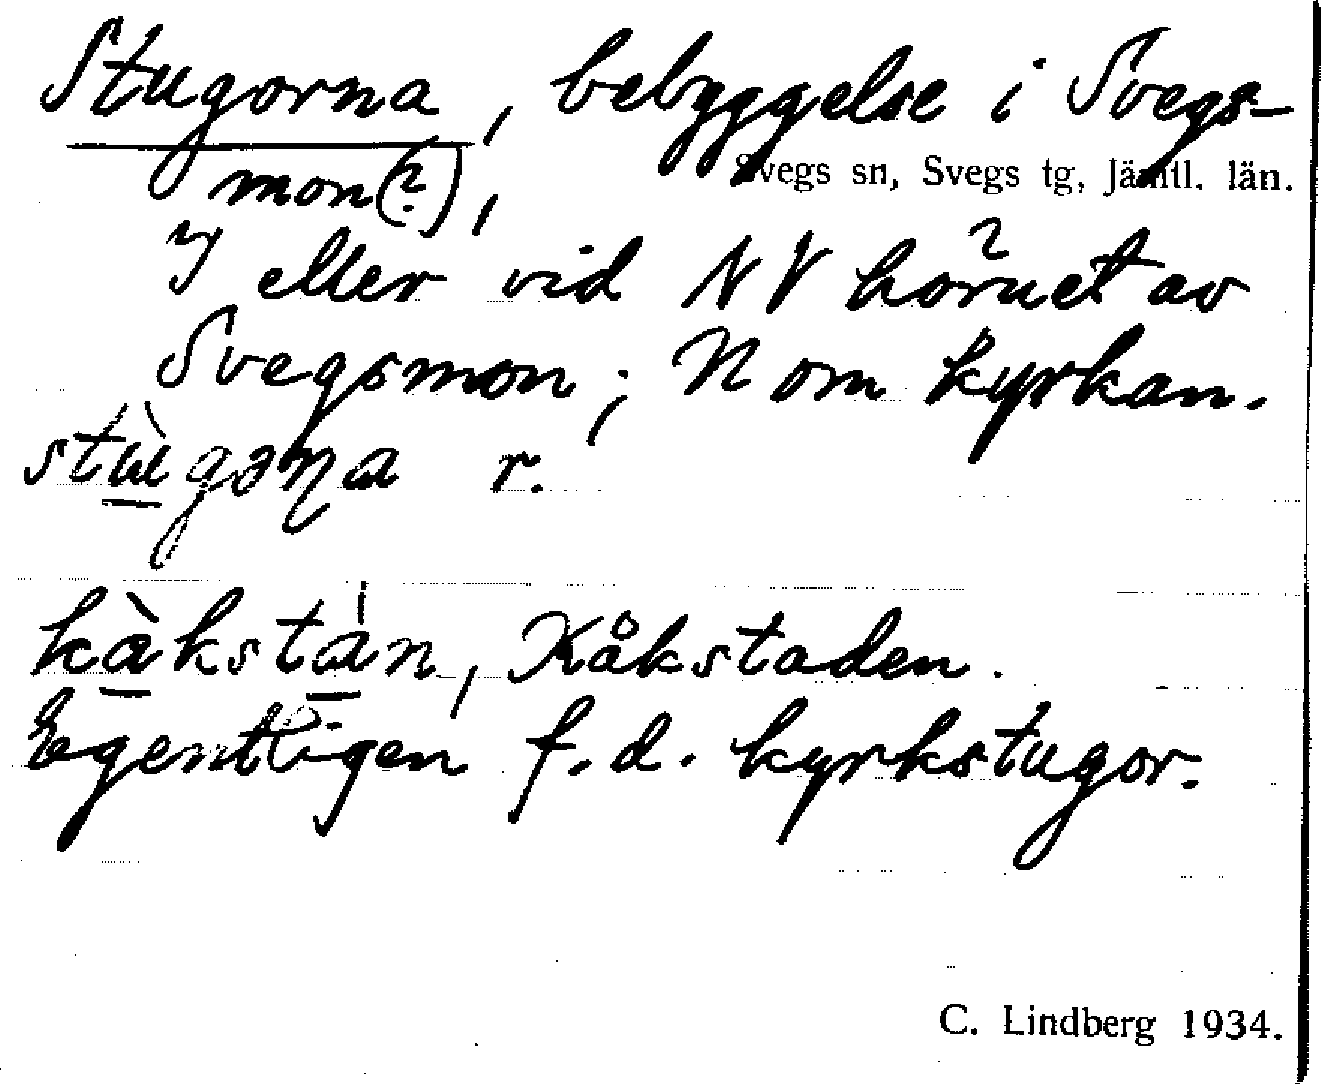 Stugorna, bebyggelse i Svegs-
Svegs sn, Svegs tg, Jämtl. län.
mon(?),
I eller vid NV hörnet av
Svegsmon; N om kyrkan.
stù̲gəṇa r.
kà̲kstá̲n, Kåkstaden.
Egentligen f.d. kyrkstugor.
C. Lindberg 1934.